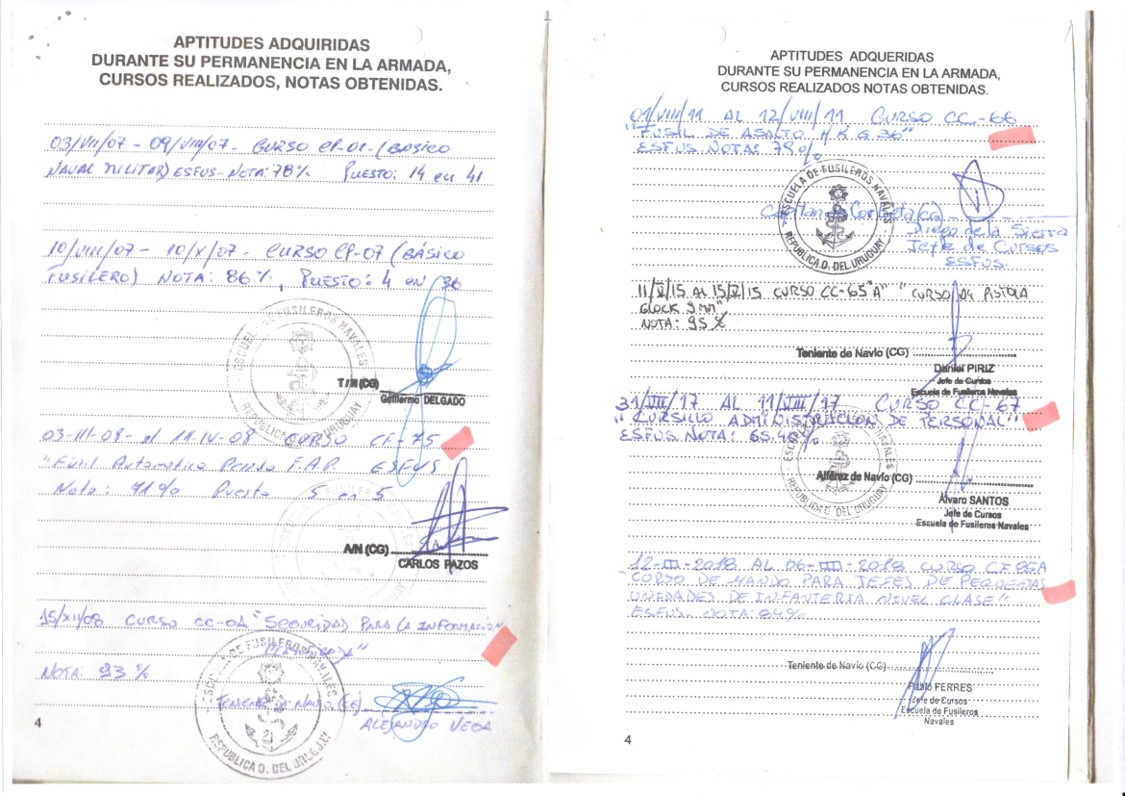 APTITUDES ADQUIRIDAS
DURANTE SU PERMANENCIA EN LA ARMADA,
CURSOS REALIZADOS, NOTAS OBTENIDAS.
03/VII/07 - 09/VIII/07 - CURSO CP-01-(BÁSICO
NAVAL MILITAR) ESFUS-NOTA: 78% PUESTO: 14 en 41
10/VIII/07 - 10/X/07 - CURSO CP-07 (BÁSICO
FUSILERO) NOTA: 86%, PUESTO: 4 en 36
ESCUELA DE FUSILEROS NAVALES
REPUBLICA O. DEL URUGUAY
T/N (CG)
Guillermo DELGADO
03-III-08 - al 11-IV-08 CURSO CF-75
"Fusil Automático Pesado F.A.P. ESFUS
Nota: 71% Puesto 5 en 5
A/N (CG)
CARLOS PAZOS
15/XII/08 CURSO CC-0A "SEGURIDAD PARA LA INFORMACIÓN
NOTA: 93%
TENIENTE DE NAVIO (CG)
ALEJANDRO VEGA
REPUBLICA O. DEL URUGUAY
4
APTITUDES ADQUERIDAS
DURANTE SU PERMANENCIA EN LA ARMADA,
CURSOS REALIZADOS NOTAS OBTENIDAS.
01/VIII/11 AL 12/VIII/11 CURSO CC-66
"FUSIL DE ASALTO H.K G 36"
ESFUS NOTA: 79%
ESCUELA DE FUSILEROS NAVALES
REPUBLICA O. DEL URUGUAY
Capitan de Corbeta (CG)
Diego de la Sierra
Jefe de Cursos
ESFUS.
11/V/15 AL 15/V/15 CURSO CC-65"A" "CURSO DE PISTOLA
GLOCK 9 MM"
NOTA: 95%
Teniente de Navío (CG)
Daniel PIRIZ
Jefe de Cursos
Escuela de Fusileros Navales
31/VII/17 AL 11/VIII/17 CURSO CC-67
"CURSILLO ADMINISTRACION DE PERSONAL"
ESFUS NOTA:
Alférez de Navío (CG)
Álvaro SANTOS
Jefe de Cursos
Escuela de Fusileros Navales
CURSO
"CURSO DE MANDO PARA JEFES DE PEQUEÑAS
UNIDADES DE INFANTERIA NIVEL CLASE"
ESFUS. NOTA: 84%
Teniente de Navío (CG)
Pablo FERRES
Jefe de Cursos
Escuela de Fusileros
Navales
4